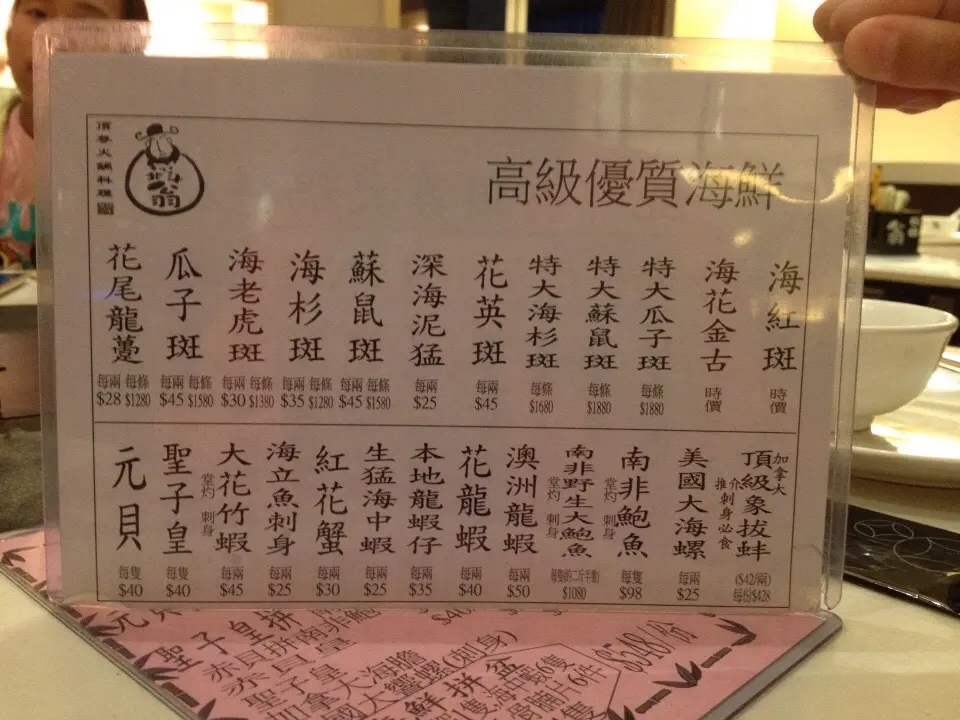 高級優質海鮮
頂尊火鍋料理
海紅斑
時價
海花金古
時價
特大瓜子斑
每條
$1880
特大蘇鼠斑
每條
$1880
特大海杉斑
每條
$1680
花英斑
每兩
$45
深海泥猛
每兩
$25
蘇鼠斑
每兩 每條
$45 $1580
海杉斑
每兩 每條
$35 $1280
海老虎斑
每兩 每條
$30 $1380
瓜子斑
每兩 每條
$45 $1580
花尾龍躉
每兩 每條
$28 $1280
加拿大
頂級象拔蚌
推介
刺身必食
($42/兩)
每份$428
美國大海螺
每兩
$25
南非鮑魚
堂灼 刺身
每隻
$98
南非野生大鮑魚
堂灼 刺身
$1080
澳洲龍蝦
每兩
$50
花龍蝦
每兩
$40
本地龍蝦仔
每兩
$35
生猛海中蝦
每兩
$25
紅花蟹
每兩
$30
海立魚刺身
每兩
$25
大花竹蝦
堂灼 刺身
每兩
$45
聖子皇
每隻
$40
元貝
每隻
$40
元貝
聖子皇拼
赤貝拼南非鮑
赤貝皇
聖子皇
加拿大海膽
國大響螺(刺身)
鮮拼盆
$548/份